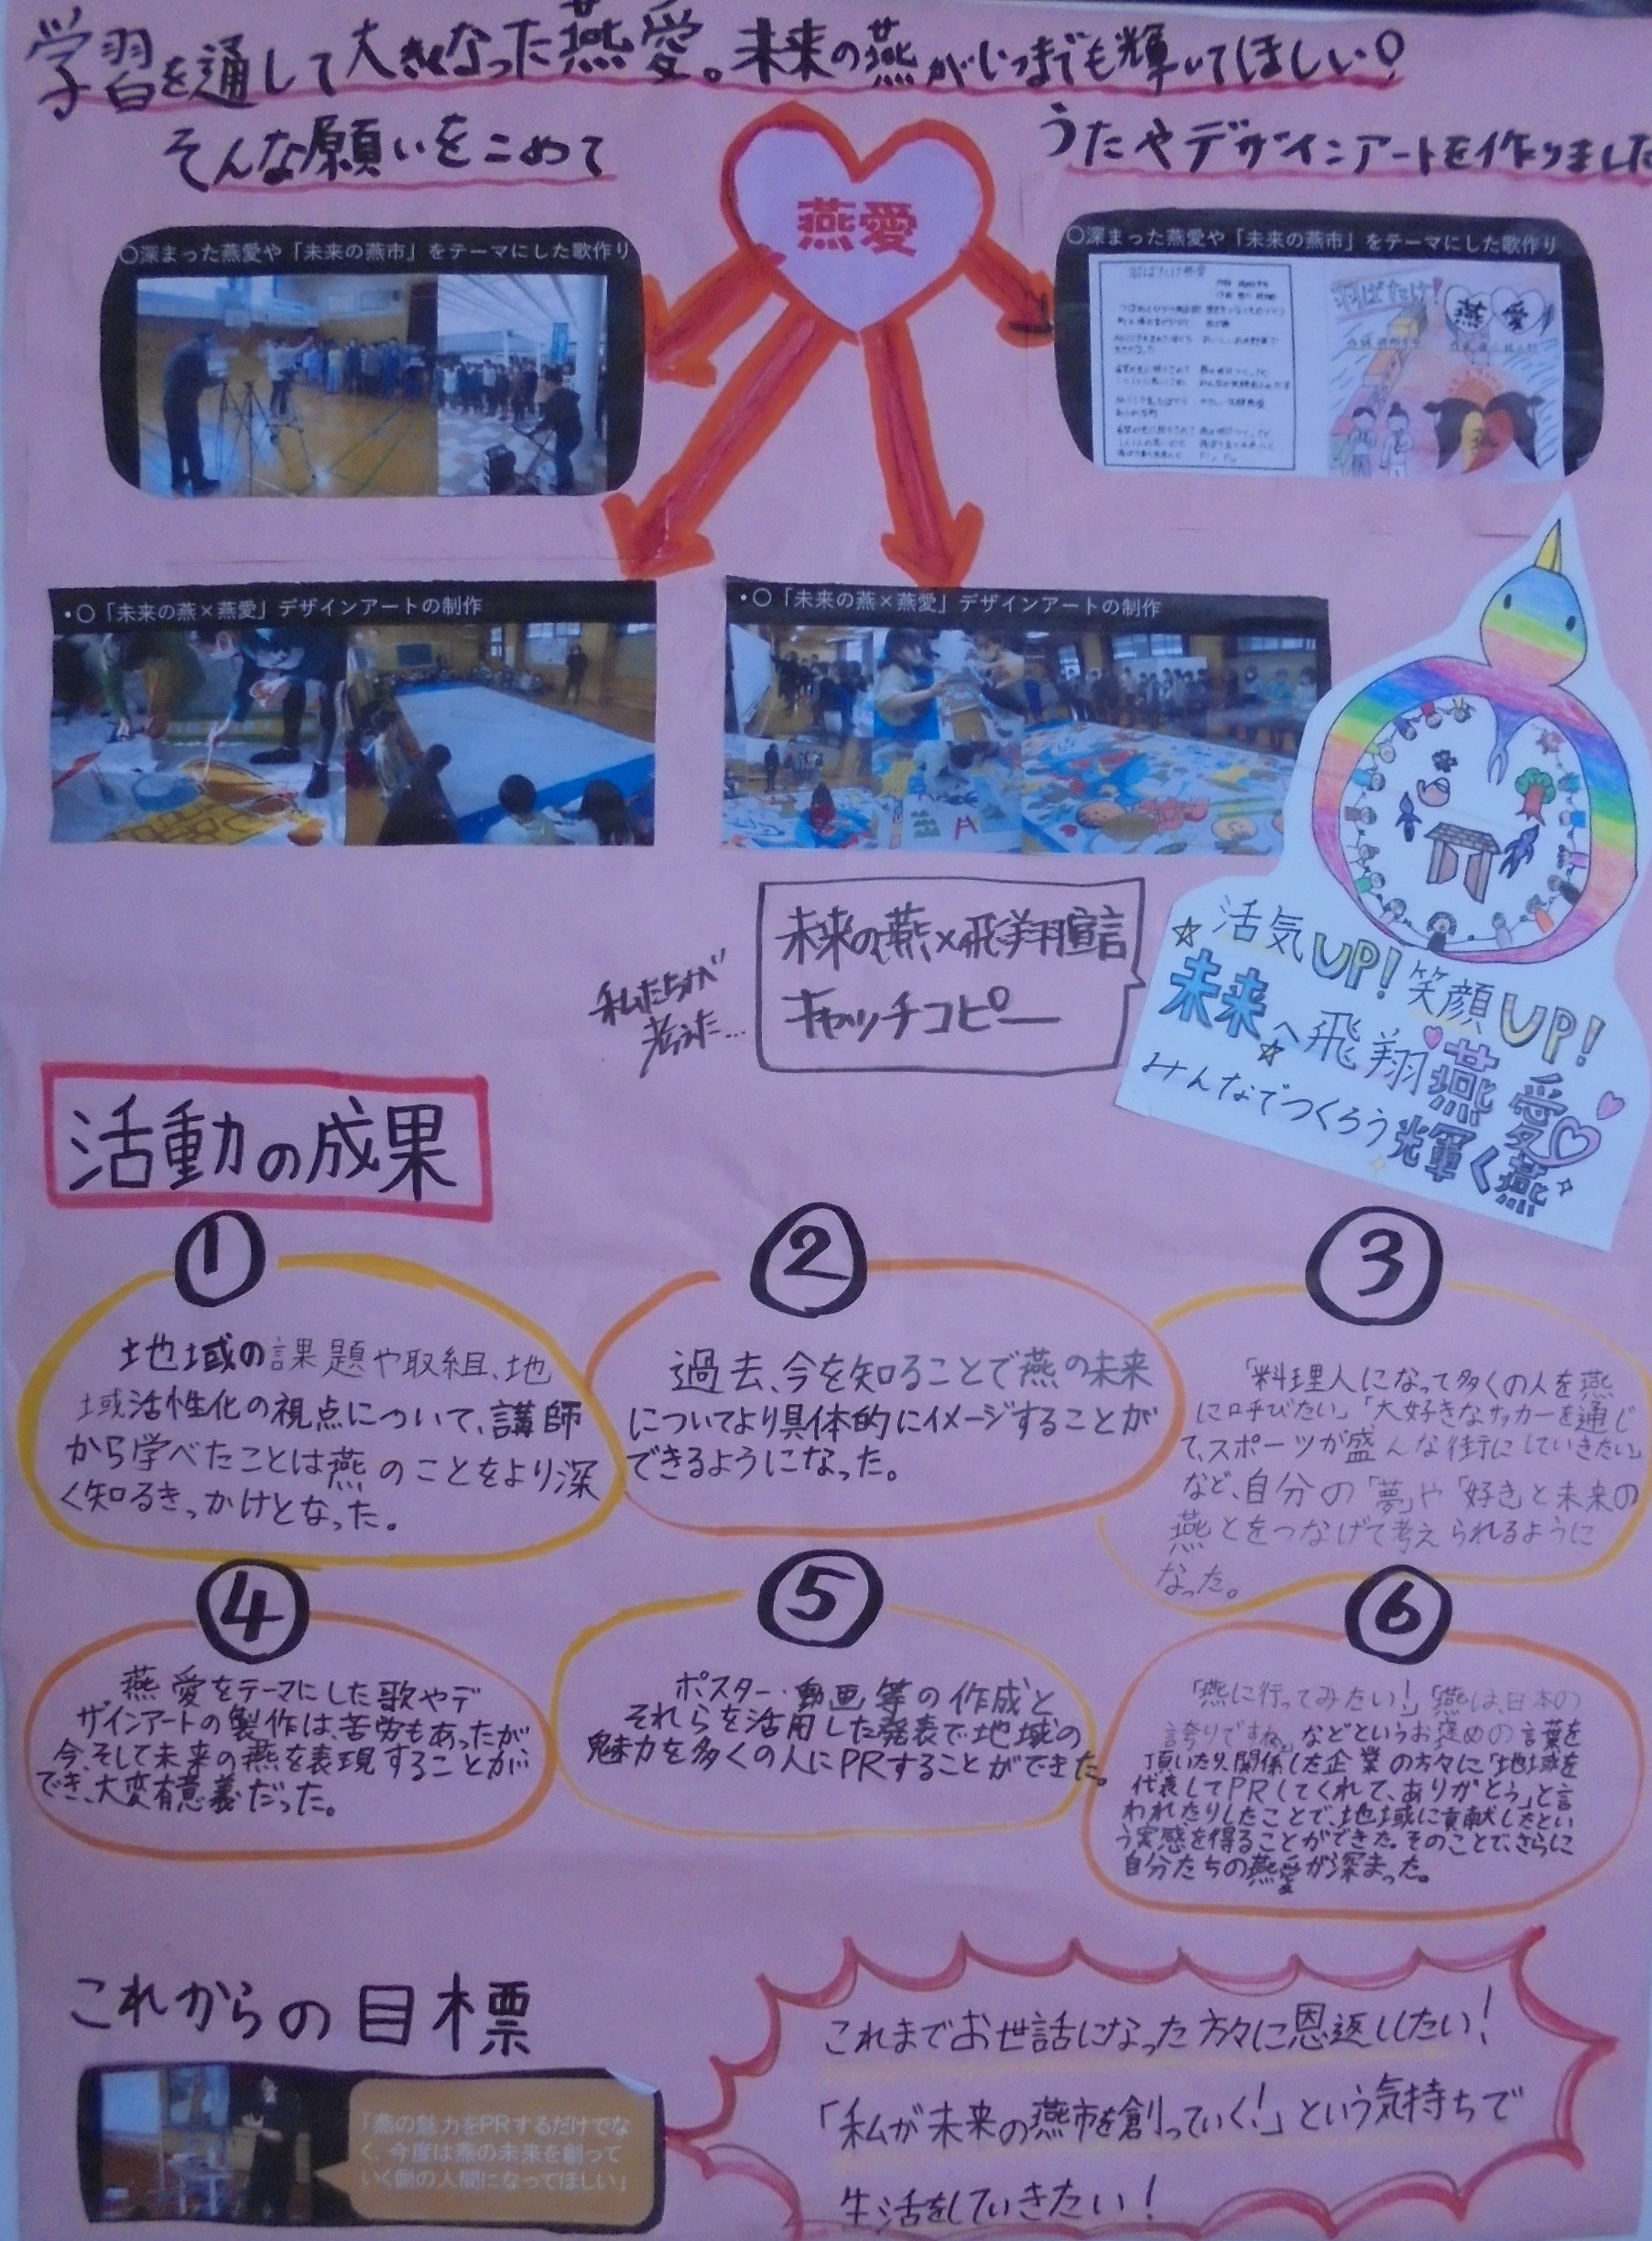 学習を通して大きくなった燕愛。未来の燕がいつまでも輝いてほしい!
そんな願いをこめて
うたやデザインアートを作りました
燕愛
○深まった燕愛や「未来の燕市」をテーマにした歌作り
○深まった燕愛や「未来の燕市」をテーマにした歌作り
羽ばたけ燕愛
羽ばたけ!
燕愛
・○「未来の燕×燕愛」デザインアートの制作
・○「未来の燕×燕愛」デザインアートの制作
私たちが
考えた…
未来の燕×飛翔宣言
キャッチコピー
☆活気UP!笑顔UP!
未来へ飛翔燕愛
みんなでつくろう輝く燕
活動の成果
①
地域の課題や取組、地
域活性化の視点について、講師
から学べたことは燕のことをより深
く知るきっかけとなった。
②
過去、今を知ることで燕の未来
についてより具体的にイメージすることが
できるようになった。
③
「料理人になって多くの人を燕
に呼びたい」「大好きなサッカーを通じ
て、スポーツが盛んな街にしていきたい」
など、自分の「夢」や「好き」と未来の
燕とをつなげて考えられるように
なった。
④
燕愛をテーマにした歌やデ
ザインアートの製作は、苦労もあったが
今、そして未来の燕を表現することが
でき、大変有意義だった。
⑤
ポスター・動画等の作成と
それらを活用した発表で地域の
魅力を多くの人にPRすることができた。
⑥
「燕に行ってみたい!」「燕は、日本の
誇りですね。」などというお褒めの言葉を
頂いたり、関係した企業の方々に「地域を
代表してPRしてくれて、ありがとう」と言
われたりしたことで、地域に貢献したとい
う実感を得ることができた。そのことで、さらに
自分たちの燕愛が深まった。
これからの目標
「燕の魅力をPRするだけでな
く、今度は燕の未来を創って
いく側の人間になってほしい」
これまでお世話になった方々に恩返ししたい!
「私が未来の燕市を創っていく!」という気持ちで
生活をしていきたい!